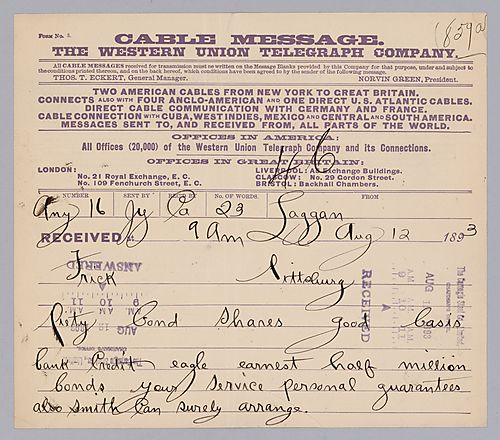 Form No. 5.
1859a
CABLE MESSAGE.
THE WESTERN UNION TELEGRAPH COMPANY.
All CABLE MESSAGES received for transmission must be written on the Message Blanks provided by this Company for that purpose, under and subject to
the conditions printed thereon, and on the back hereof, which conditions have been agreed to by the sender of the following message.
THOS. T. ECKERT, General Manager. NORVIN GREEN, President.
TWO AMERICAN CABLES FROM NEW YORK TO GREAT BRITAIN.
CONNECTS ALSO WITH FOUR ANGLO-AMERICAN AND ONE DIRECT U.S. ATLANTIC CABLES.
DIRECT CABLE COMMUNICATION WITH GERMANY AND FRANCE.
CABLE CONNECTION WITH CUBA, WEST INDIES, MEXICO AND CENTRAL AND SOUTH AMERICA.
MESSAGES SENT TO, AND RECEIVED FROM, ALL PARTS OF THE WORLD.
OFFICES IN AMERICA:
All Offices (20,000) of the Western Union Telegraph Company and its Connections.
OFFICES IN GREAT BRITAIN:
LONDON: LIVERPOOL: Exchange Buildings.
No. 21 Royal Exchange, E. C. GLASGOW: No. 29 Gordon Street.
No. 109 Fenchurch Street, E. C. BRISTOL: Backhall Chambers.
116
NUMBER SENT BY REC'D BY No. OF WORDS. FROM
Any 16 Jy Ca 23 Laggan
RECEIVED at 9 am Aug 12 1893
Frick Pittsburg
ANSWERED
RECEIVED
Piety Bond Shares good basis
bank Credit eagle earnest half million
bonds your service personal guarantees
also smith can surely arrange.